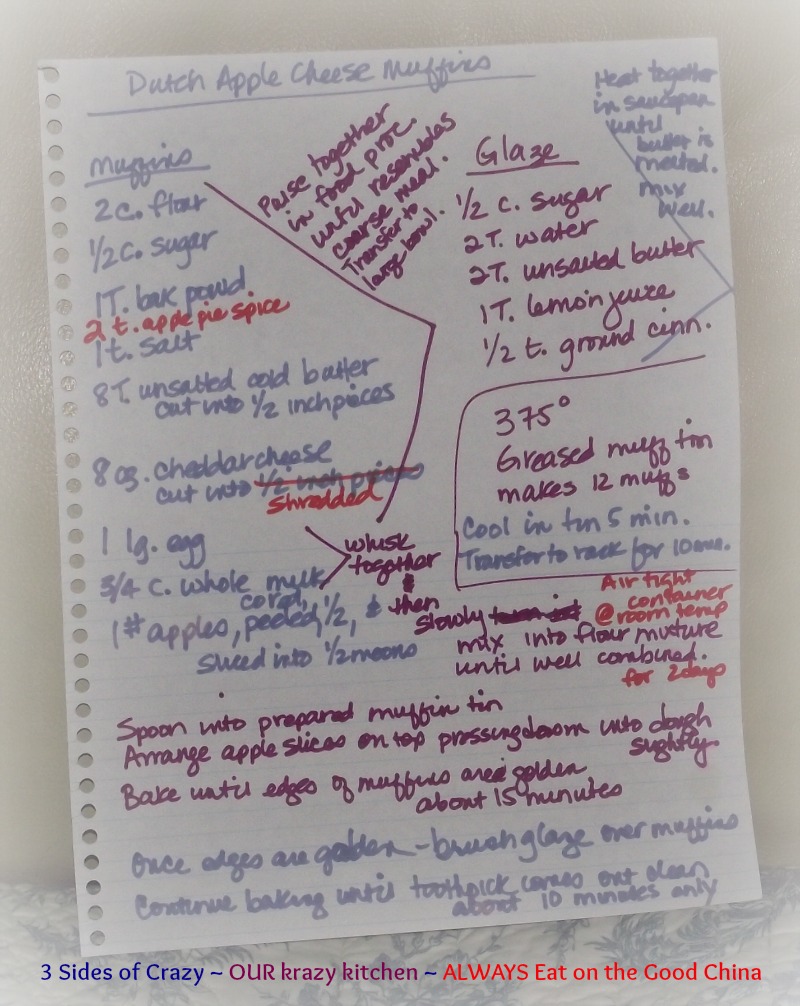 Dutch Apple Cheese Muffins
Muffins
2 c. flour
1/2 c. sugar
1T. bak powd.
2 t. apple pie spice
1 t. salt
8 T. unsalted cold butter
cut into 1/2 inch pieces
8 oz. cheddar cheese
cut into 1/2 inch pieces
Shredded
Pulse together
in food proc.
until resembles
coarse meal.
Transfer to
large bowl.
1 lg. egg
3/4 c. whole mylk
whisk
together
&
then
slowly
mix into flour mixture
until well combined.
1# apples, peeled, 1/2, &
cored,
sliced into 1/2 moons
Glaze
1/2 c. sugar
2T. water
2T. unsalted butter
1T. lemon juice
1/2 t. ground cinn.
Heat together
in saucepan
until
butter is
melted.
mix
well.
375°
Greased muff tin
makes 12 muffs
Cool in tin 5 min.
Transfer to rack for 10 min.
Air tight
container
@ room temp
for 2 days
Spoon into prepared muffin tin
Arrange apple slices on top pressing down into dough
slightly.
Bake until edges of muffins are golden
about 15 minutes
Once edges are golden - brush glaze over muffins
Continue baking until toothpick comes out clean
about 10 minutes only
3 Sides of Crazy ~ OUR krazy kitchen ~ ALWAYS Eat on the Good China